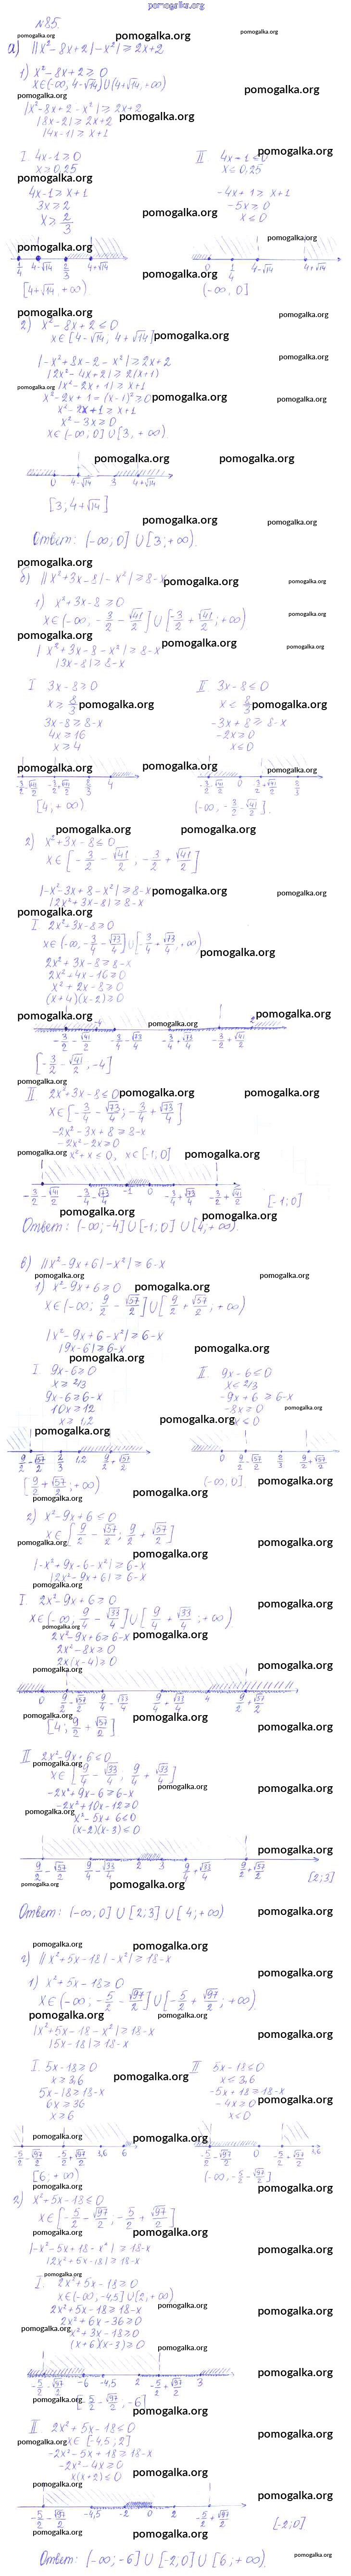 pomogalka.org
№85.
а) ||x² − 8x + 2| − x²| ≥ 2x + 2
1) x² − 8x + 2 ≥ 0
x ∈ (−∞, 4−√14] ∪ [4+√14, +∞)
|x² − 8x + 2 − x²| ≥ 2x + 2
|8x − 2| ≥ 2x + 2
|4x − 1| ≥ x + 1
I. 4x − 1 ≥ 0    II 4x − 1 ≤ 0
x ≥ 0,25    x ≤ 0,25
4x − 1 ≥ x + 1    −4x + 1 ≥ x + 1
3x ≥ 2    −5x ≥ 0
x ≥ 2/3    x ≤ 0
1/4  4−√14  2/3  4+√14    0  1/4  4−√14  4+√14
[4+√14, +∞)    (−∞, 0]
2) x² − 8x + 2 ≤ 0
x ∈ [4−√14, 4+√14]
|−x² + 8x − 2 − x²| ≥ 2x + 2
|2x² − 4x + 2| ≥ 2(x+1)
|x² − 2x + 1| ≥ x + 1
x² − 2x + 1 = (x−1)² ≥ 0
x² − 2x + 1 ≥ x + 1
x² − 3x ≥ 0
x ∈ (−∞, 0] ∪ [3, +∞)
0  4−√14  3  4+√14
[3; 4+√14]
Ответ: (−∞, 0] ∪ [3; +∞).
б) ||x² + 3x − 8| − x²| ≥ 8 − x
1) x² + 3x − 8 ≥ 0
x ∈ (−∞, −3/2 − √41/2] ∪ [−3/2 + √41/2; +∞)
|x² + 3x − 8 − x²| ≥ 8 − x
|3x − 8| ≥ 8 − x
I 3x − 8 ≥ 0    II. 3x − 8 ≤ 0
x ≥ 8/3    x ≤ 8/3
3x − 8 ≥ 8 − x    −3x + 8 ≥ 8 − x
4x ≥ 16    −2x ≥ 0
x ≥ 4    x ≤ 0
−3/2 − √41/2  −3/2 + √41/2  8/3  4    −3/2 − √41/2  0  −3/2 + √41/2  8/3
[4; +∞)    (−∞, −3/2 − √41/2].
2) x² + 3x − 8 ≤ 0
x ∈ [−3/2 − √41/2, −3/2 + √41/2]
|−x² − 3x + 8 − x²| ≥ 8 − x
|2x² + 3x − 8| ≥ 8 − x
I. 2x² + 3x − 8 ≥ 0
x ∈ (−∞, −3/4 − √73/4] ∪ [−3/4 + √73/4, +∞)
2x² + 3x − 8 ≥ 8 − x
2x² + 4x − 16 ≥ 0
x² + 2x − 8 ≥ 0
(x+4)(x−2) ≥ 0
−3/2 − √41/2  −4  −3/4 − √73/4  −3/4 + √73/4  −3/2 + √41/2  2
[−3/2 − √41/2, −4]
II. 2x² + 3x − 8 ≤ 0
x ∈ [−3/4 − √73/4; −3/4 + √73/4]
−2x² − 3x + 8 ≥ 8 − x
−2x² − 2x ≥ 0
x² + x ≤ 0, x ∈ [−1, 0]
−3/2 − √41/2  −3/4 − √73/4  −1  0  −3/4 + √73/4  −3/2 + √41/2    [−1; 0]
Ответ: (−∞; −4] ∪ [−1; 0] ∪ [4; +∞)
в) ||x² − 9x + 6| − x²| ≥ 6 − x
1) x² − 9x + 6 ≥ 0
x ∈ (−∞; 9/2 − √57/2] ∪ [9/2 + √57/2; +∞)
|x² − 9x + 6 − x²| ≥ 6 − x
|9x − 6| ≥ 6 − x
I. 9x − 6 ≥ 0    II. 9x − 6 ≤ 0
x ≥ 2/3    x ≤ 2/3
9x − 6 ≥ 6 − x    −9x + 6 ≥ 6 − x
10x ≥ 12    −8x ≥ 0
x ≥ 1,2    x ≤ 0
9/2 − √57/2  2/3  1,2  9/2 + √57/2    0  9/2 − √57/2  2/3  9/2 + √57/2
[9/2 + √57/2; +∞)    (−∞, 0].
2) x² − 9x + 6 ≤ 0
x ∈ [9/2 − √57/2; 9/2 + √57/2]
|−x² + 9x − 6 − x²| ≥ 6 − x
|2x² − 9x + 6| ≥ 6 − x
I 2x² − 9x + 6 ≥ 0
x ∈ (−∞, 9/4 − √33/4] ∪ [9/4 + √33/4; +∞)
2x² − 9x + 6 ≥ 6 − x
2x² − 8x ≥ 0
2x(x−4) ≥ 0
0  9/2 − √57/2  9/4 − √33/4  9/4 + √33/4  4  9/2 + √57/2
[4; 9/2 + √57/2]
II 2x² − 9x + 6 ≤ 0
x ∈ [9/4 − √33/4, 9/4 + √33/4]
−2x² + 9x − 6 ≥ 6 − x
−2x² + 10x − 12 ≥ 0
x² − 5x + 6 ≤ 0
(x−2)(x−3) ≤ 0
9/2 − √57/2  9/4 − √33/4  2  3  9/4 + √33/4  9/2 + √57/2    [2; 3]
Ответ: (−∞, 0] ∪ [2; 3] ∪ [4; +∞)
г) ||x² + 5x − 18| − x²| ≥ 18 − x
1) x² + 5x − 18 ≥ 0
x ∈ (−∞; −5/2 − √97/2] ∪ [−5/2 + √97/2; +∞)
|x² + 5x − 18 − x²| ≥ 18 − x
|5x − 18| ≥ 18 − x
I. 5x − 18 ≥ 0    II 5x − 18 ≤ 0
x ≥ 3,6    x ≤ 3,6
5x − 18 ≥ 18 − x    −5x + 18 ≥ 18 − x
6x ≥ 36    −4x ≥ 0
x ≥ 6    x ≤ 0
−5/2 − √97/2  −5/2 + √97/2  3,6  6    −5/2 − √97/2  0  −5/2 + √97/2  3,6
[6; +∞)    (−∞, −5/2 − √97/2]
2) x² + 5x − 18 ≤ 0
x ∈ [−5/2 − √97/2, −5/2 + √97/2]
|−x² − 5x + 18 − x²| ≥ 18 − x
|2x² + 5x − 18| ≥ 18 − x
I. 2x² + 5x − 18 ≥ 0
x ∈ (−∞, −4,5] ∪ [2, +∞)
2x² + 5x − 18 ≥ 18 − x
2x² + 6x − 36 ≥ 0
x² + 3x − 18 ≥ 0
(x+6)(x−3) ≥ 0
−5/2 − √97/2  −6  −4,5  2  −5/2 + √97/2  3
[−5/2 − √97/2, −6]
II 2x² + 5x − 18 ≤ 0
x ∈ [−4,5; 2]
−2x² − 5x + 18 ≥ 18 − x
−2x² − 4x ≥ 0
x(x+2) ≤ 0
−5/2 − √97/2  −4,5  −2  0  2  −5/2 + √97/2    [−2; 0]
Ответ: (−∞; −6] ∪ [−2; 0] ∪ [6; +∞).